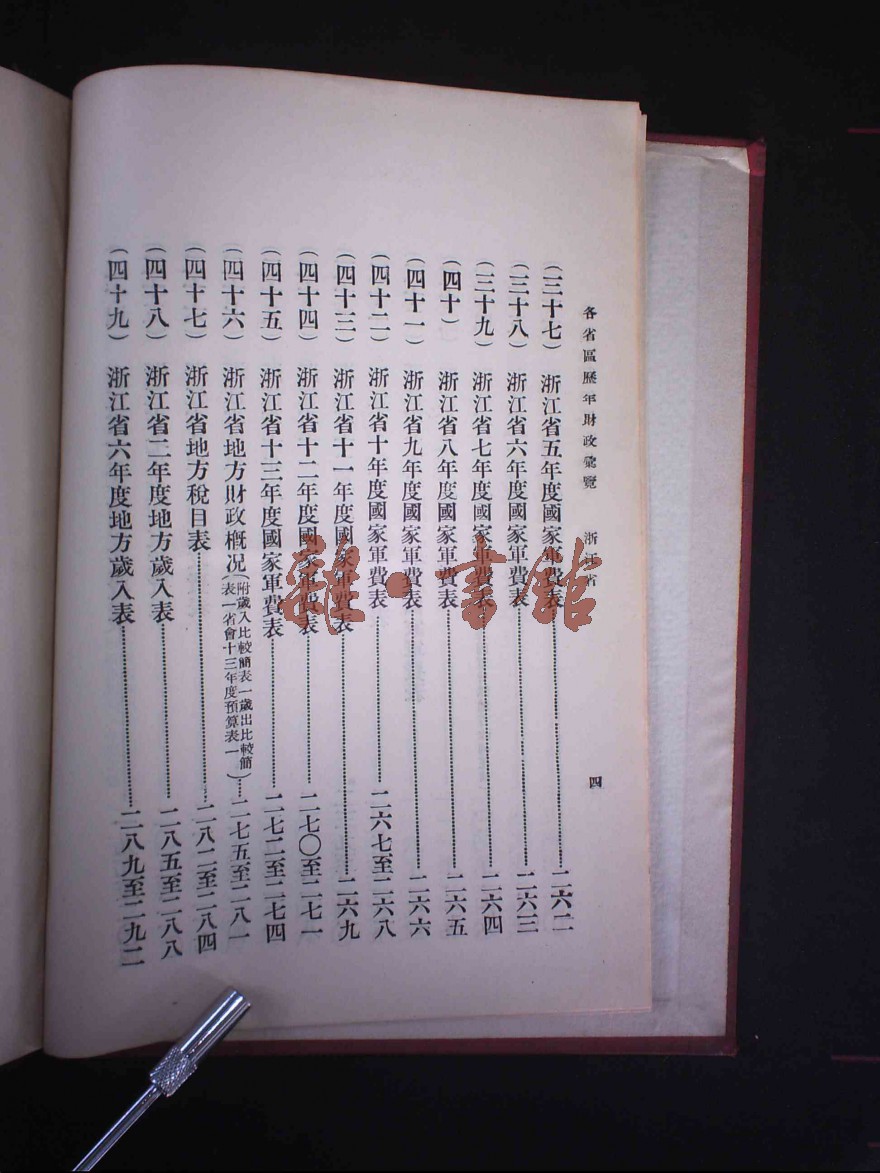 各省區歷年財政彙覽　浙江省　四
(三十七)　浙江省五年度國家軍費表……二六二
(三十八)　浙江省六年度國家軍費表……二六三
(三十九)　浙江省七年度國家軍費表……二六四
(四十)　浙江省八年度國家軍費表……二六五
(四十一)　浙江省九年度國家軍費表……二六六
(四十二)　浙江省十年度國家軍費表……二六七至二六八
(四十三)　浙江省十一年度國家軍費表……二六九
(四十四)　浙江省十二年度國家軍費表……二七〇至二七一
(四十五)　浙江省十三年度國家軍費表……二七二至二七四
(四十六)　浙江省地方財政概况(附歲入比較簡表一歲出比較簡表一省會十三年度預算表一)……二七五至二八一
(四十七)　浙江省地方稅目表……二八二至二八四
(四十八)　浙江省二年度地方歲入表……二八五至二八八
(四十九)　浙江省六年度地方歲入表……二八九至二九二
雜·書館